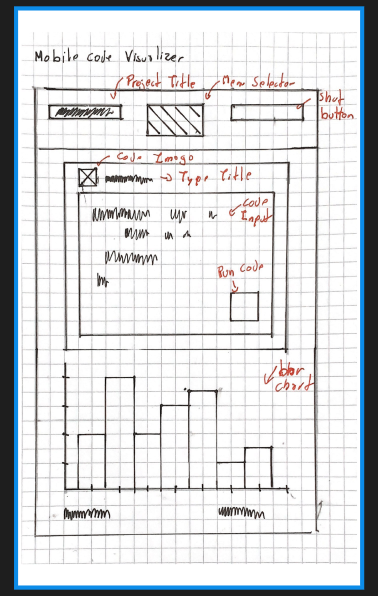 Mobile code Visualizer
Project Title
Menu Selector
Shut button
Code Image
Type Title
Code Input
Run Code
bar chart